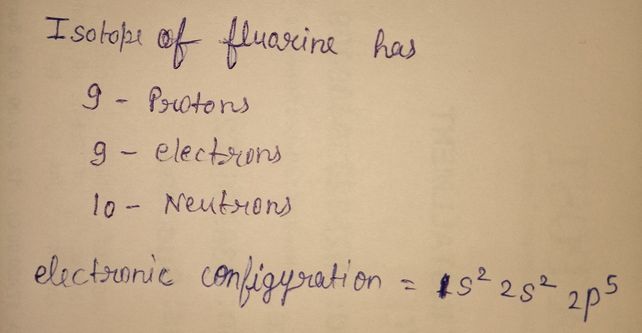 Isotope of fluarine has
9 - Protons
9 - electrons
10 - Neutrons
electronic configyration = 1s² 2s² 2p⁵